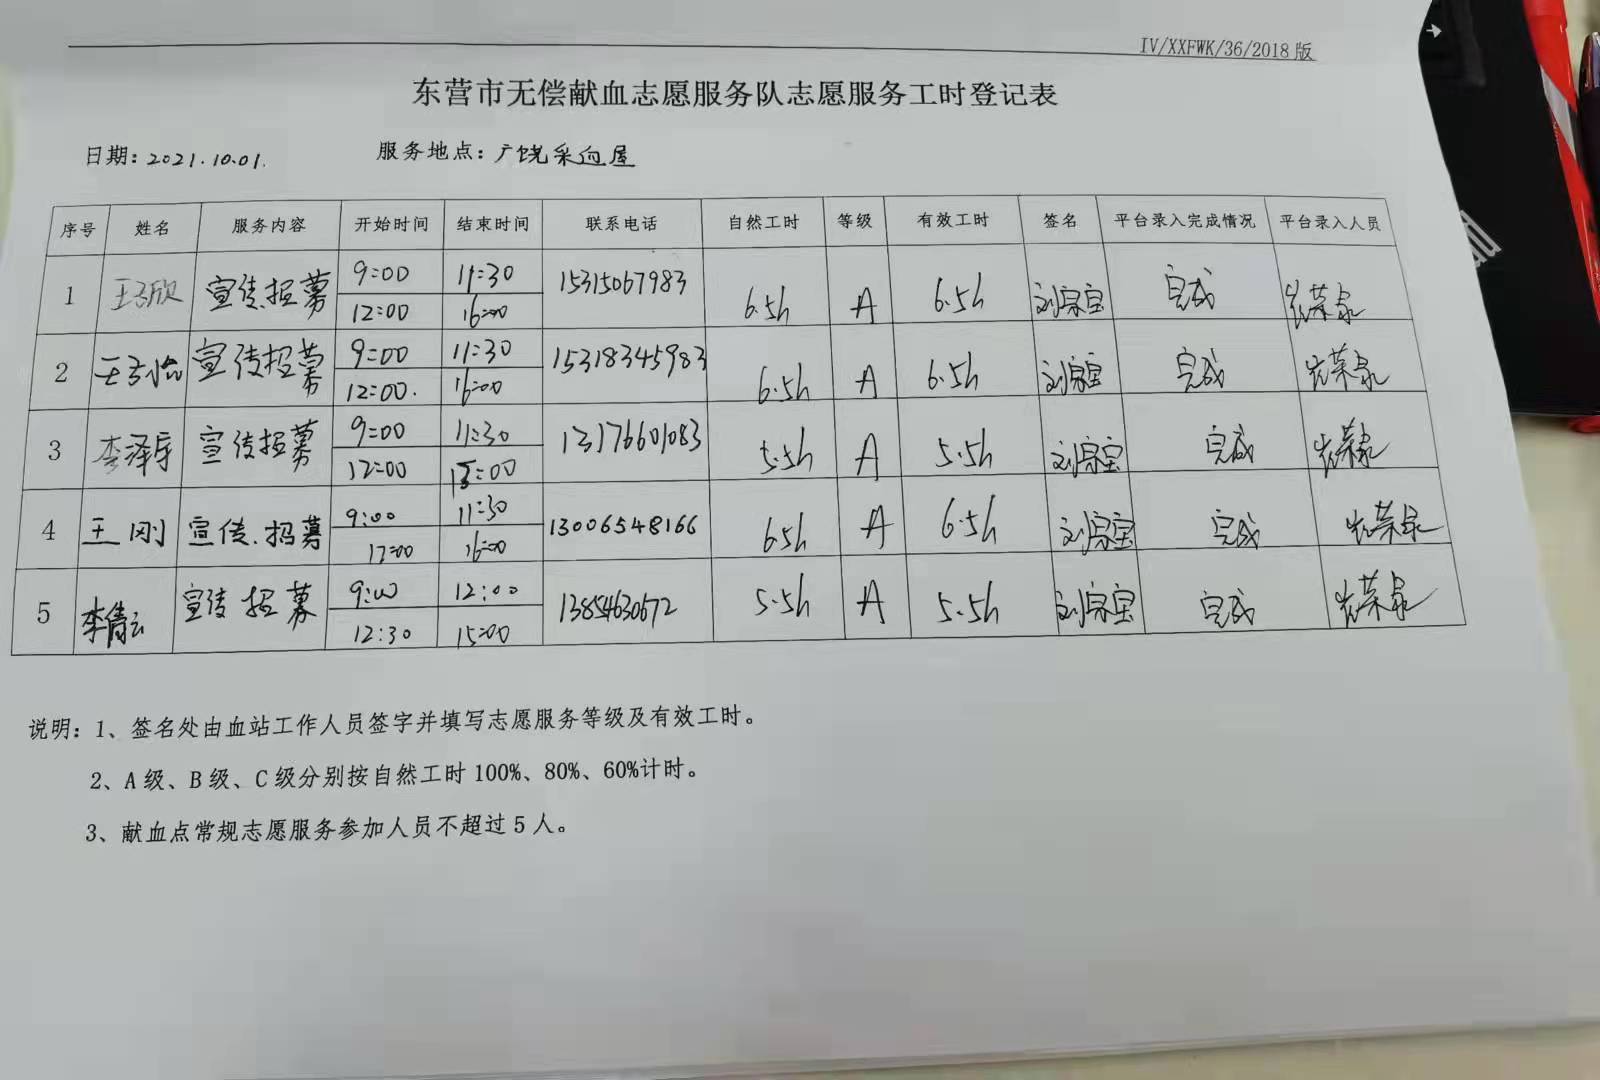 IV/XXFWK/36/2018版
东营市无偿献血志愿服务队志愿服务工时登记表
日期：2021.10.01. 服务地点：广饶采血屋
序号 姓名 服务内容 开始时间 结束时间 联系电话 自然工时 等级 有效工时 签名 平台录入完成情况 平台录入人员
1 王子欣 宣传.招募 9:00 11:30 15315067983 6.5h A 6.5h 刘宗宝 完成
12:00 16:00
2 王子怡 宣传招募 9:00 11:30 15318345983 6.5h A 6.5h 刘宗宝 完成
12:00. 16:00
3 李泽宇 宣传招募 9:00 11:30 13176601083 5.5h A 5.5h 刘宗宝 完成
12:00 15:00
4 王刚 宣传.招募 9:00 11:30 13006548166 6.5h A 6.5h 刘宗宝 完成
12:00 16:00
5 李倩云 宣传招募 9:00 12:00 13854630672 5.5h A 5.5h 刘宗宝 完成
12:30 15:00
说明：1、签名处由血站工作人员签字并填写志愿服务等级及有效工时。
2、A级、B级、C级分别按自然工时100%、80%、60%计时。
3、献血点常规志愿服务参加人员不超过5人。